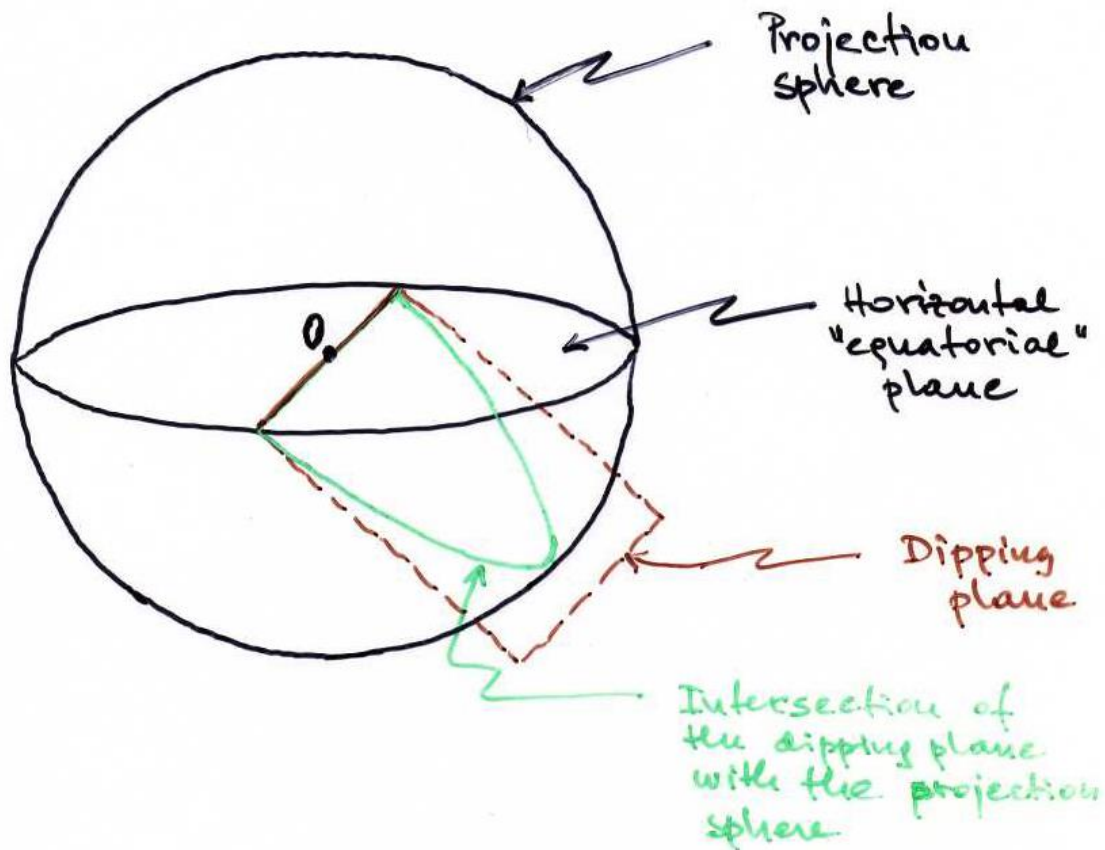 Projection
sphere
O
Horizontal
"equatorial"
plane
Dipping
plane
Intersection of
the dipping plane
with the projection
sphere